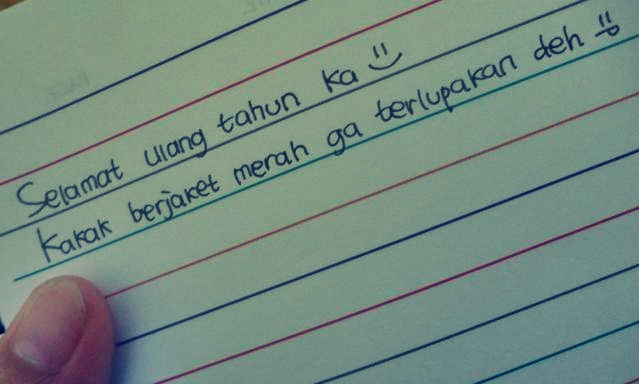 Selamat ulang tahun ka
Kakak berjaket merah ga terlupakan deh